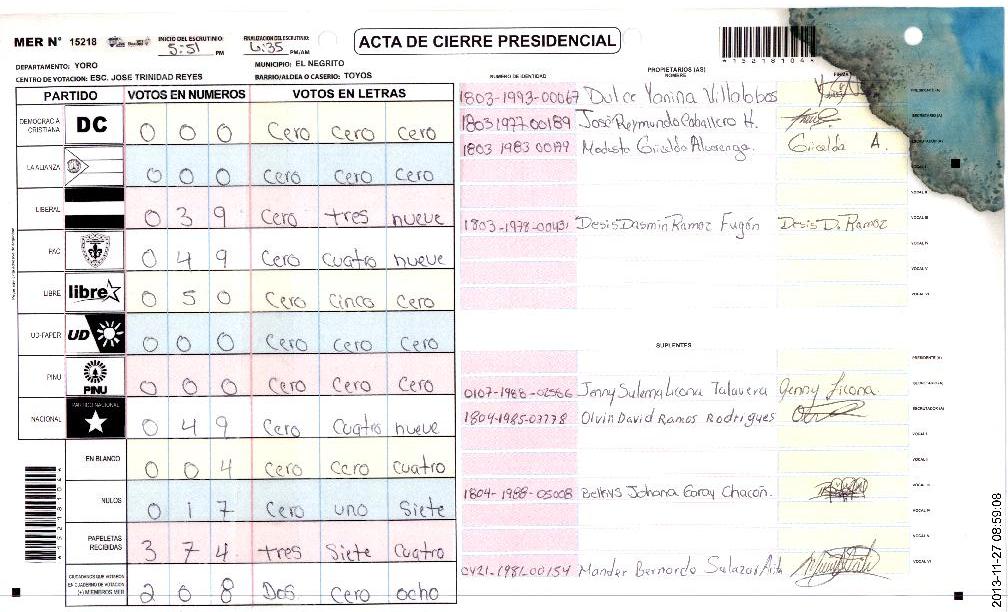 MER Nº 15218 INICIO DEL ESCRUTINIO 5:51 PM FINALIZACION DEL ESCRUTINIO 6:35 PM/AM
ACTA DE CIERRE PRESIDENCIAL
DEPARTAMENTO: YORO MUNICIPIO: EL NEGRITO
CENTRO DE VOTACION: ESC. JOSE TRINIDAD REYES BARRIO/ALDEA O CASERIO: TOYOS
PARTIDO VOTOS EN NUMEROS VOTOS EN LETRAS
DEMOCRACIA CRISTIANA DC 0 0 0 Cero Cero Cero
LA ALIANZA 0 0 0 Cero Cero Cero
LIBERAL 0 3 9 Cero tres nueve
PAC 0 4 9 Cero Cuatro nueve
LIBRE libre 0 5 0 Cero Cinco Cero
UD-FAPER UD 0 0 0 Cero Cero Cero
PINU PINU 0 0 0 Cero Cero Cero
NACIONAL PARTIDO NACIONAL 0 4 9 Cero Cuatro nueve
EN BLANCO 0 0 4 Cero Cero Cuatro
NULOS 0 1 7 Cero uno Siete
PAPELETAS RECIBIDAS 3 7 4 tres Siete Cuatro
CIUDADANOS QUE VOTARON EN CUADERNO DE VOTACION (+) MIEMBROS MER 2 0 8 Dos Cero ocho
*15218104*
PROPIETARIOS (AS)
NUMERO DE IDENTIDAD NOMBRE FIRMA
1803-1993-00067 Dulce Yanina Villalobos PRESIDENTE (A)
1803 1977 00189 José Reymundo Caballero H. SECRETARIO (A)
1803 1983 00199 Modesta Giralda Alvarenga. Giralda A. ESCRUTADOR (A)
VOCAL I
VOCAL II
1803-1978-00431 Desis Dasmin Ramoz Fugón Desis D. Ramoz VOCAL III
VOCAL IV
VOCAL V
VOCAL VI
SUPLENTES
PRESIDENTE (A)
0107-1988-02566 Jenny Sulema Licona Talavera Jenny Licona. SECRETARIO (A)
1804-1985-03778 Olvin David Ramos Rodrigues ESCRUTADOR (A)
VOCAL I
VOCAL II
1804-1988-05008 Belkys Johana Garay Chacón. VOCAL III
VOCAL IV
VOCAL V
0421-1981-00154 Mander Bernardo Salazar VOCAL VI
*15218104*
2013-11-27 08:59:08